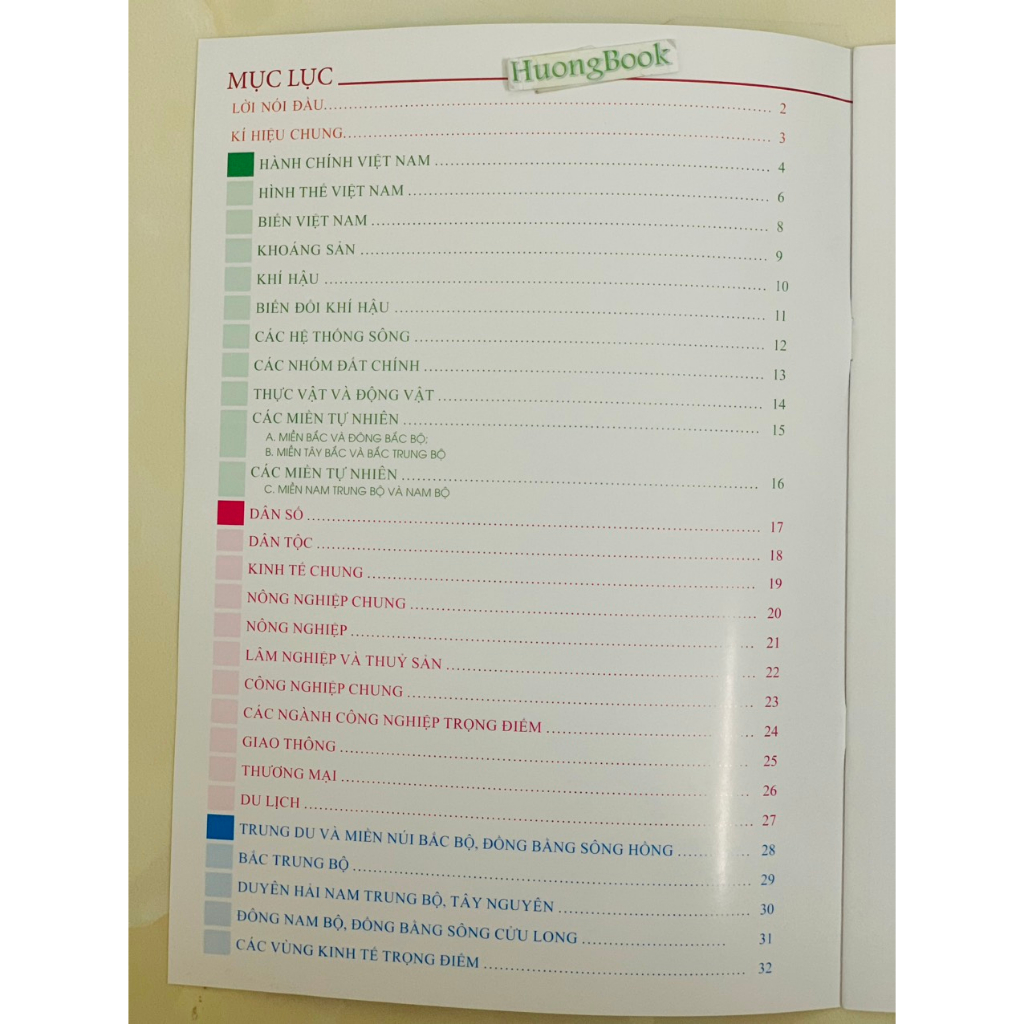 HuongBook
MỤC LỤC
LỜI NÓI ĐẦU 2
KÍ HIỆU CHUNG 3
HÀNH CHÍNH VIỆT NAM 4
HÌNH THỂ VIỆT NAM 6
BIỂN VIỆT NAM 8
KHOÁNG SẢN 9
KHÍ HẬU 10
BIẾN ĐỔI KHÍ HẬU 11
CÁC HỆ THỐNG SÔNG 12
CÁC NHÓM ĐẤT CHÍNH 13
THỰC VẬT VÀ ĐỘNG VẬT 14
CÁC MIỀN TỰ NHIÊN 15
A. MIỀN BẮC VÀ ĐÔNG BẮC BỘ;
B. MIỀN TÂY BẮC VÀ BẮC TRUNG BỘ
CÁC MIỀN TỰ NHIÊN 16
C. MIỀN NAM TRUNG BỘ VÀ NAM BỘ
DÂN SỐ 17
DÂN TỘC 18
KINH TẾ CHUNG 19
NÔNG NGHIỆP CHUNG 20
NÔNG NGHIỆP 21
LÂM NGHIỆP VÀ THUỶ SẢN 22
CÔNG NGHIỆP CHUNG 23
CÁC NGÀNH CÔNG NGHIỆP TRỌNG ĐIỂM 24
GIAO THÔNG 25
THƯƠNG MẠI 26
DU LỊCH 27
TRUNG DU VÀ MIỀN NÚI BẮC BỘ, ĐỒNG BẰNG SÔNG HỒNG 28
BẮC TRUNG BỘ 29
DUYÊN HẢI NAM TRUNG BỘ, TÂY NGUYÊN 30
ĐÔNG NAM BỘ, ĐỒNG BẰNG SÔNG CỬU LONG 31
CÁC VÙNG KINH TẾ TRỌNG ĐIỂM 32